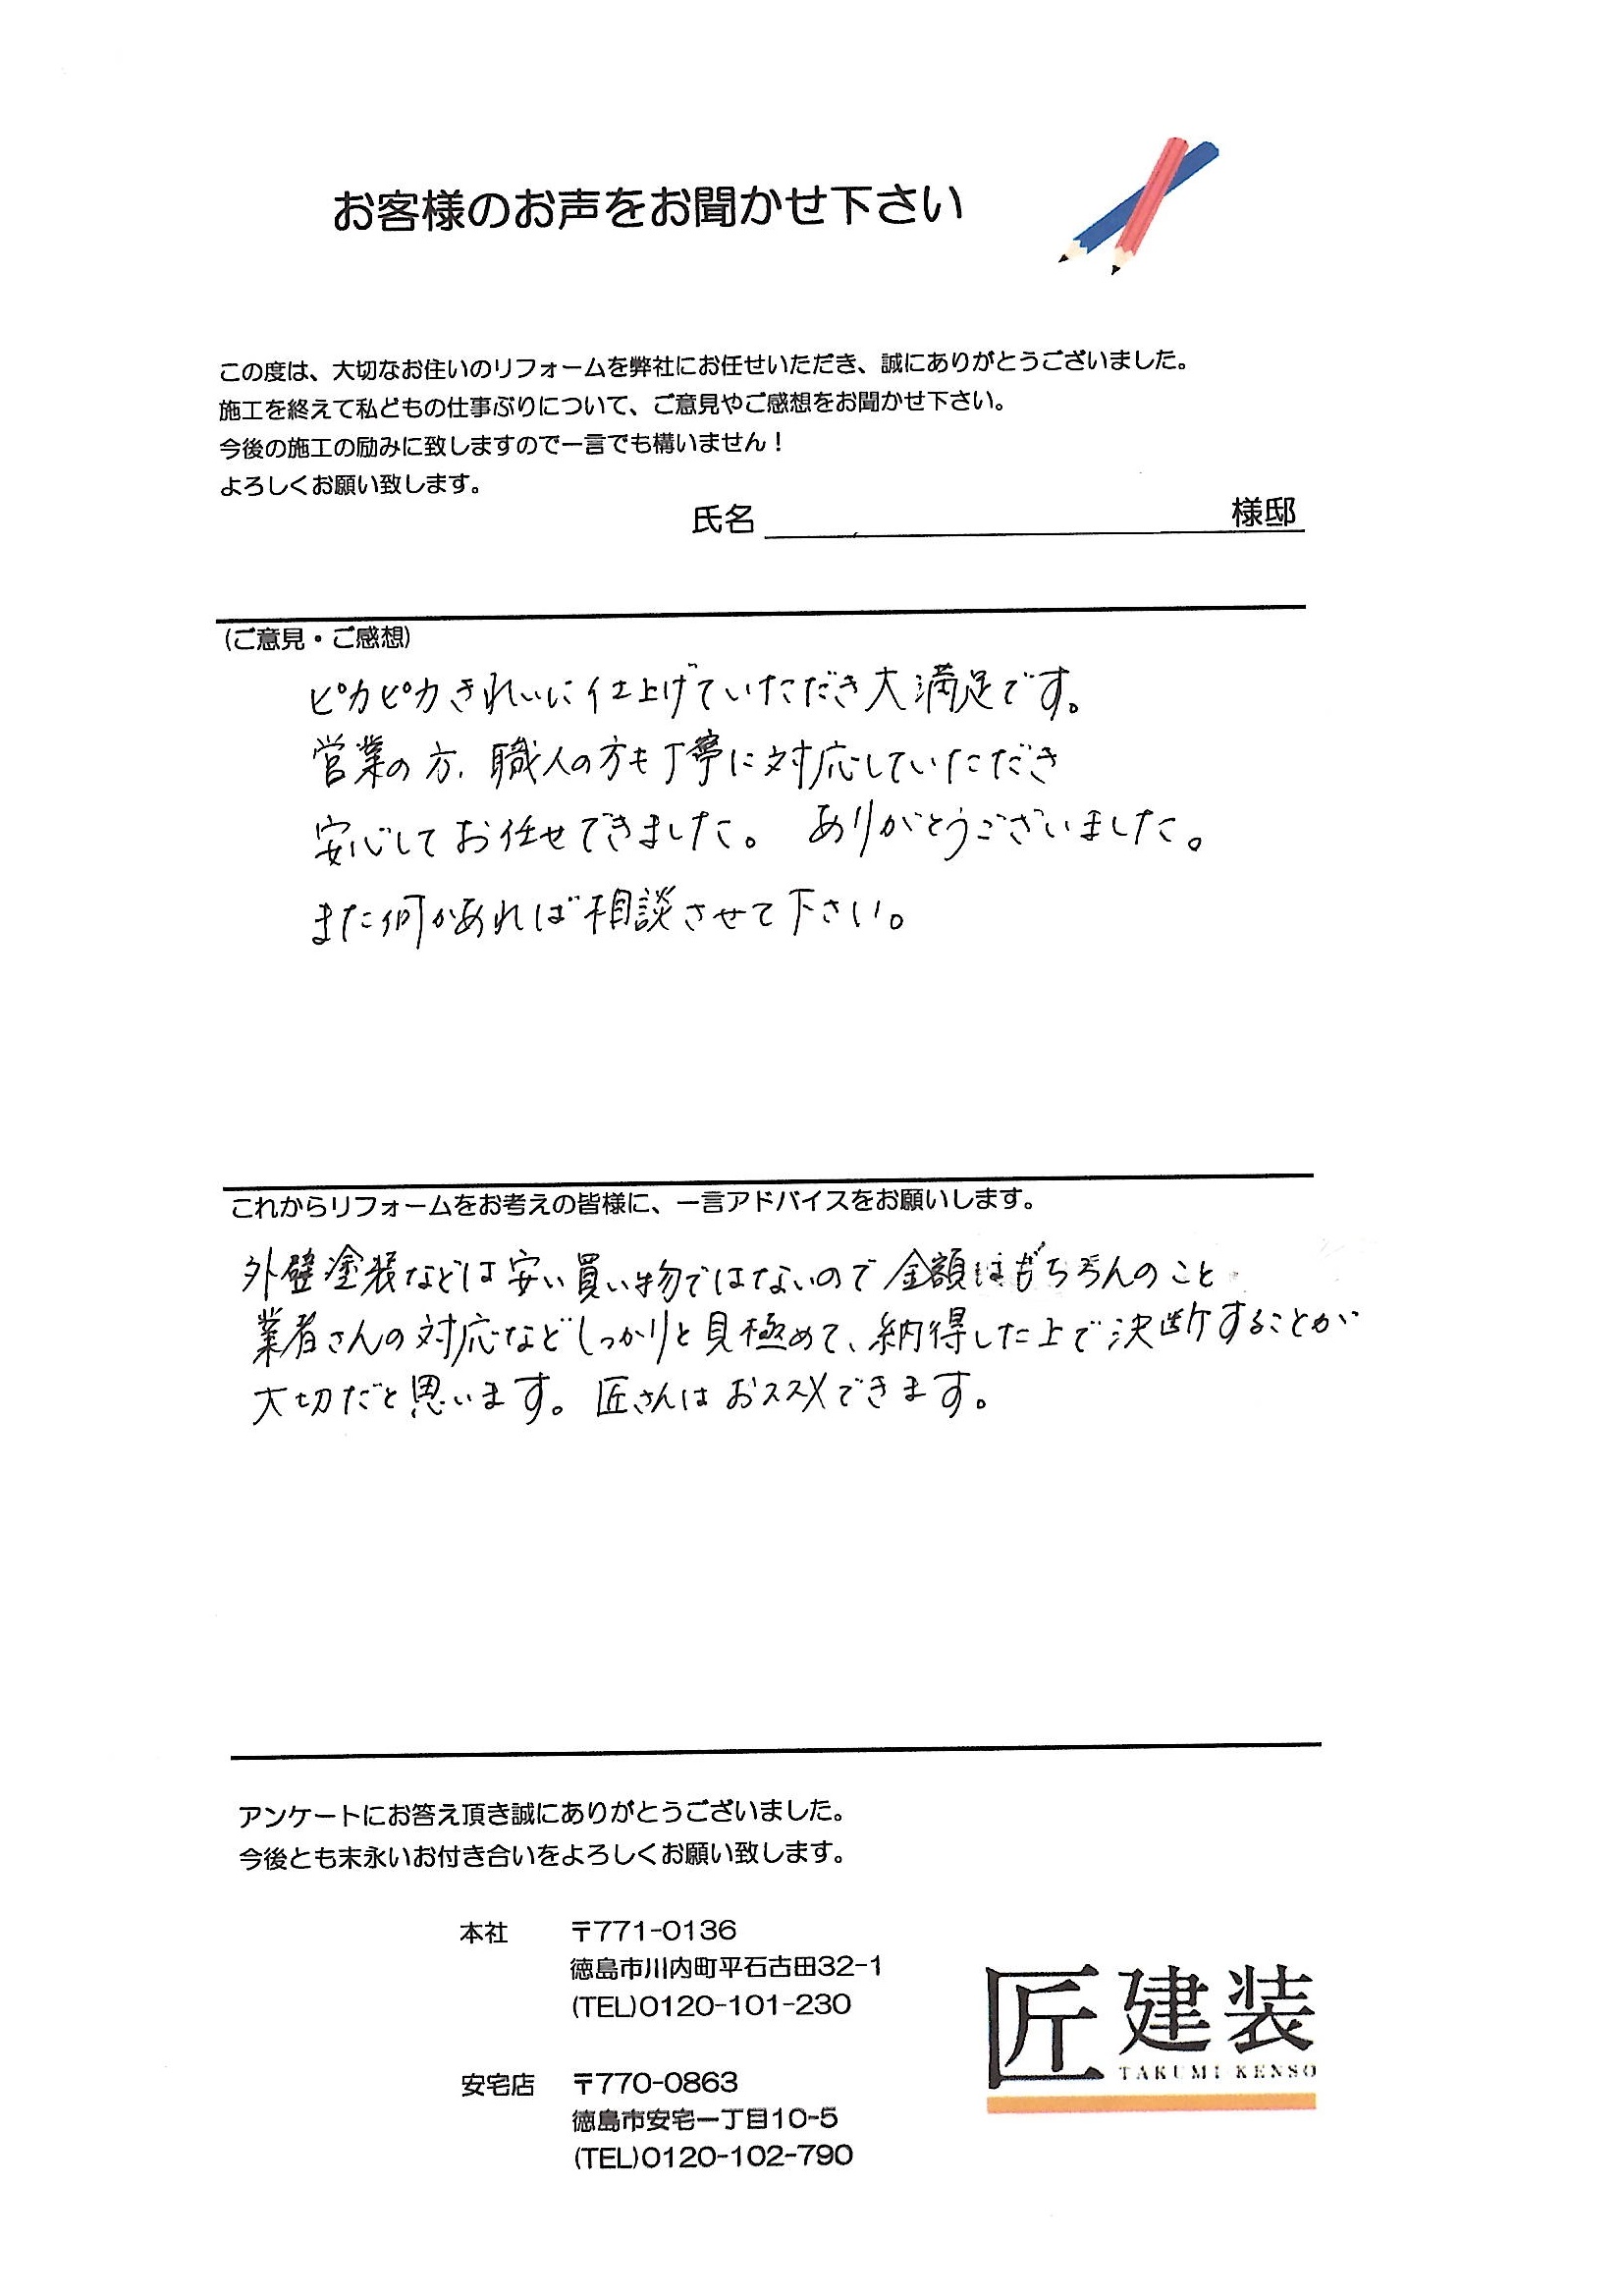 お客様のお声をお聞かせ下さい
この度は、大切なお住いのリフォームを弊社にお任せいただき、誠にありがとうございました。
施工を終えて私どもの仕事ぶりについて、ご意見やご感想をお聞かせ下さい。
今後の施工の励みに致しますので一言でも構いません！
よろしくお願い致します。
氏名 様邸
(ご意見・ご感想)
ピカピカきれいに仕上げていただき大満足です。
営業の方、職人の方も丁寧に対応していただき
安心してお任せできました。 ありがとうございました。
また何かあれば相談させて下さい。
これからリフォームをお考えの皆様に、一言アドバイスをお願いします。
外壁塗装などは安い買い物ではないので金額はもちろんのこと
業者さんの対応などしっかりと見極めて、納得した上で決断することが
大切だと思います。匠さんはおススメできます。
アンケートにお答え頂き誠にありがとうございました。
今後とも末永いお付き合いをよろしくお願い致します。
本社 〒771-0136
徳島市川内町平石古田32-1
(TEL)0120-101-230
安宅店 〒770-0863
徳島市安宅一丁目10-5
(TEL)0120-102-790
匠建装
TAKUMI KENSO